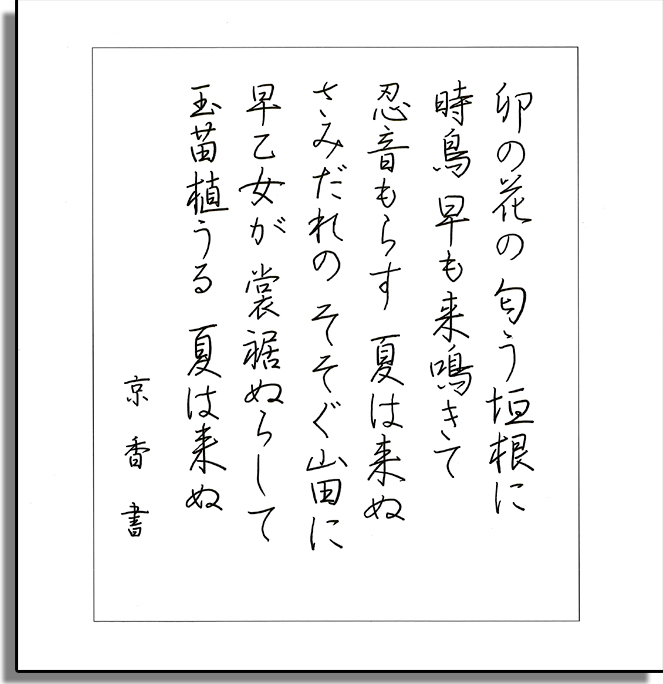 卯の花の 匂う垣根に
時鳥 早も来鳴きて
忍音もらす 夏は来ぬ
さみだれの そそぐ山田に
早乙女が 裳裾ぬらして
玉苗植うる 夏は来ぬ
京香書